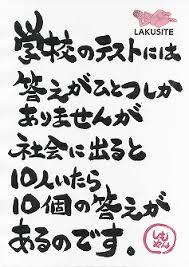 LAKUSITE
学校のテストには
答えがひとつしか
ありませんが
社会に出ると
10人いたら
10個の答えが
あるのです。